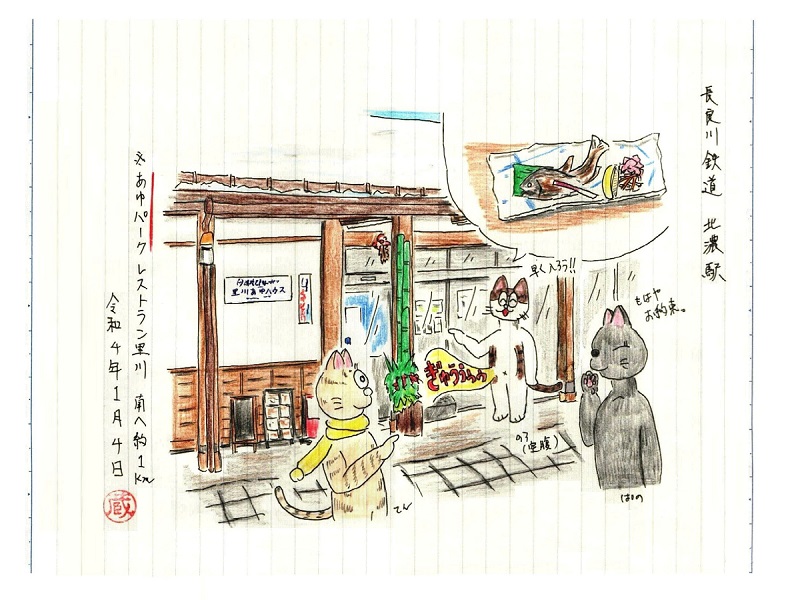 長良川鉄道　北濃駅
早く入ろう!!
もはや
お約束。
里川あゆハウス
ぎゅうぅぅぅ
のろ
(空腹)
てん
はの
※あゆパークレストラン里川　南へ約1km
令和4年1月4日
蔵